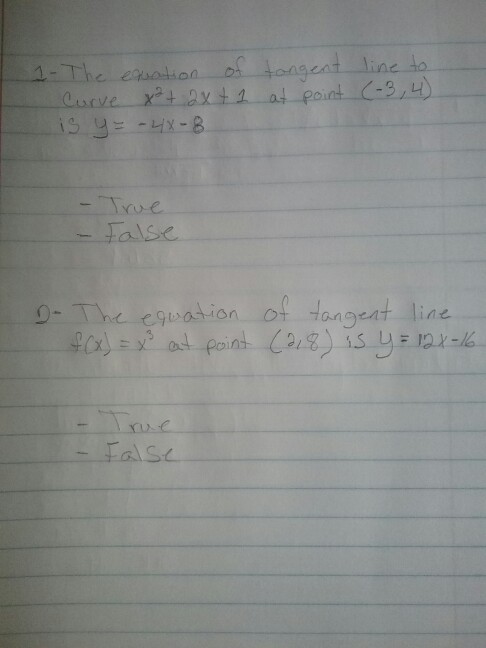 1- The equation of tangent line to
curve x² + 2x + 1 at point (-3,4)
is y = -4x - 8
- True
- False
2- The equation of tangent line
f(x) = x³ at point (2,8) is y = 12x-16
- True
- False